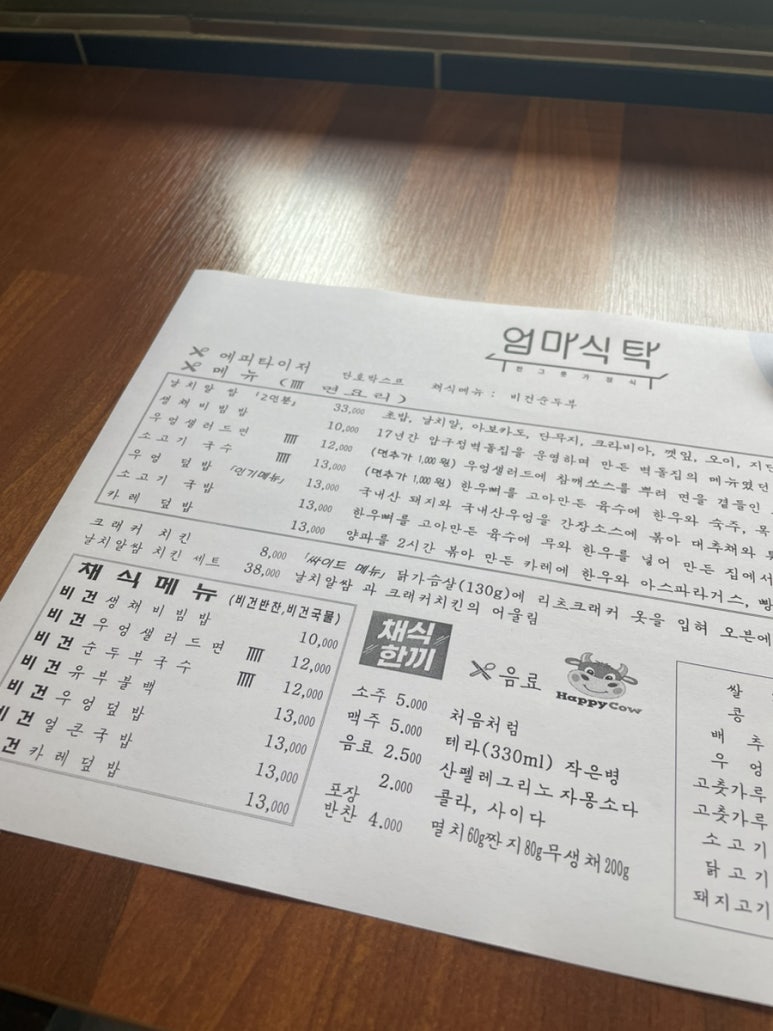 엄마식탁
한그릇가정식
에피타이저 단호박스프 채식메뉴 : 비건순두부
메뉴 ( 면요리 )
날치알쌈 「2인분」 33,000 초밥, 날치알, 아보카도, 단무지, 크라비아, 깻잎, 오이, 지단
생채비빔밥 10,000 17년간 압구정벽돌집을 운영하며 만든 벽돌집의 메뉴였던
우엉샐러드면 12,000 (면추가 1,000원) 우엉샐러드에 참깨쏘스를 뿌려 면을 곁들인
소고기 국수 13,000 (면추가 1,000원) 한우뼈를 고아만든 육수에 한우와 숙주, 목
우엉 덮밥 「인기메뉴」 13,000 국내산 돼지와 국내산우엉을 간장소스에 볶아 대추채와
소고기 국밥 13,000 한우뼈를 고아만든 육수에 무와 한우를 넣어 만든 집에서
카레 덮밥 13,000 양파를 2시간 볶아 만든 카레에 한우와 아스파라거스, 빵
크래커 치킨 8,000 「싸이드 메뉴」 닭가슴살(130g)에 리츠크래커 옷을 입혀 오븐에
날치알쌈 치킨 세트 38,000 날치알쌈 과 크래커치킨의 어울림
채식메뉴 (비건반찬,비건국물)
비건 생채비빔밥 10,000
비건 우엉샐러드면 12,000
비건 순두부국수 12,000
비건 유부불백 13,000
비건 우엉덮밥 13,000
비건 얼큰국밥 13,000
건 카레덮밥 13,000
채식
한끼
음료
HappyCow
소주 5.000 처음처럼
맥주 5.000 테라(330ml) 작은병
음료 2.500 산펠레그리노 자몽소다
2.000 콜라, 사이다
포장
반찬 4.000 멸치60g짠지80g무생채200g
쌀
콩
배추
우엉
고춧가루
고춧가루
소고기
닭고기
돼지고기